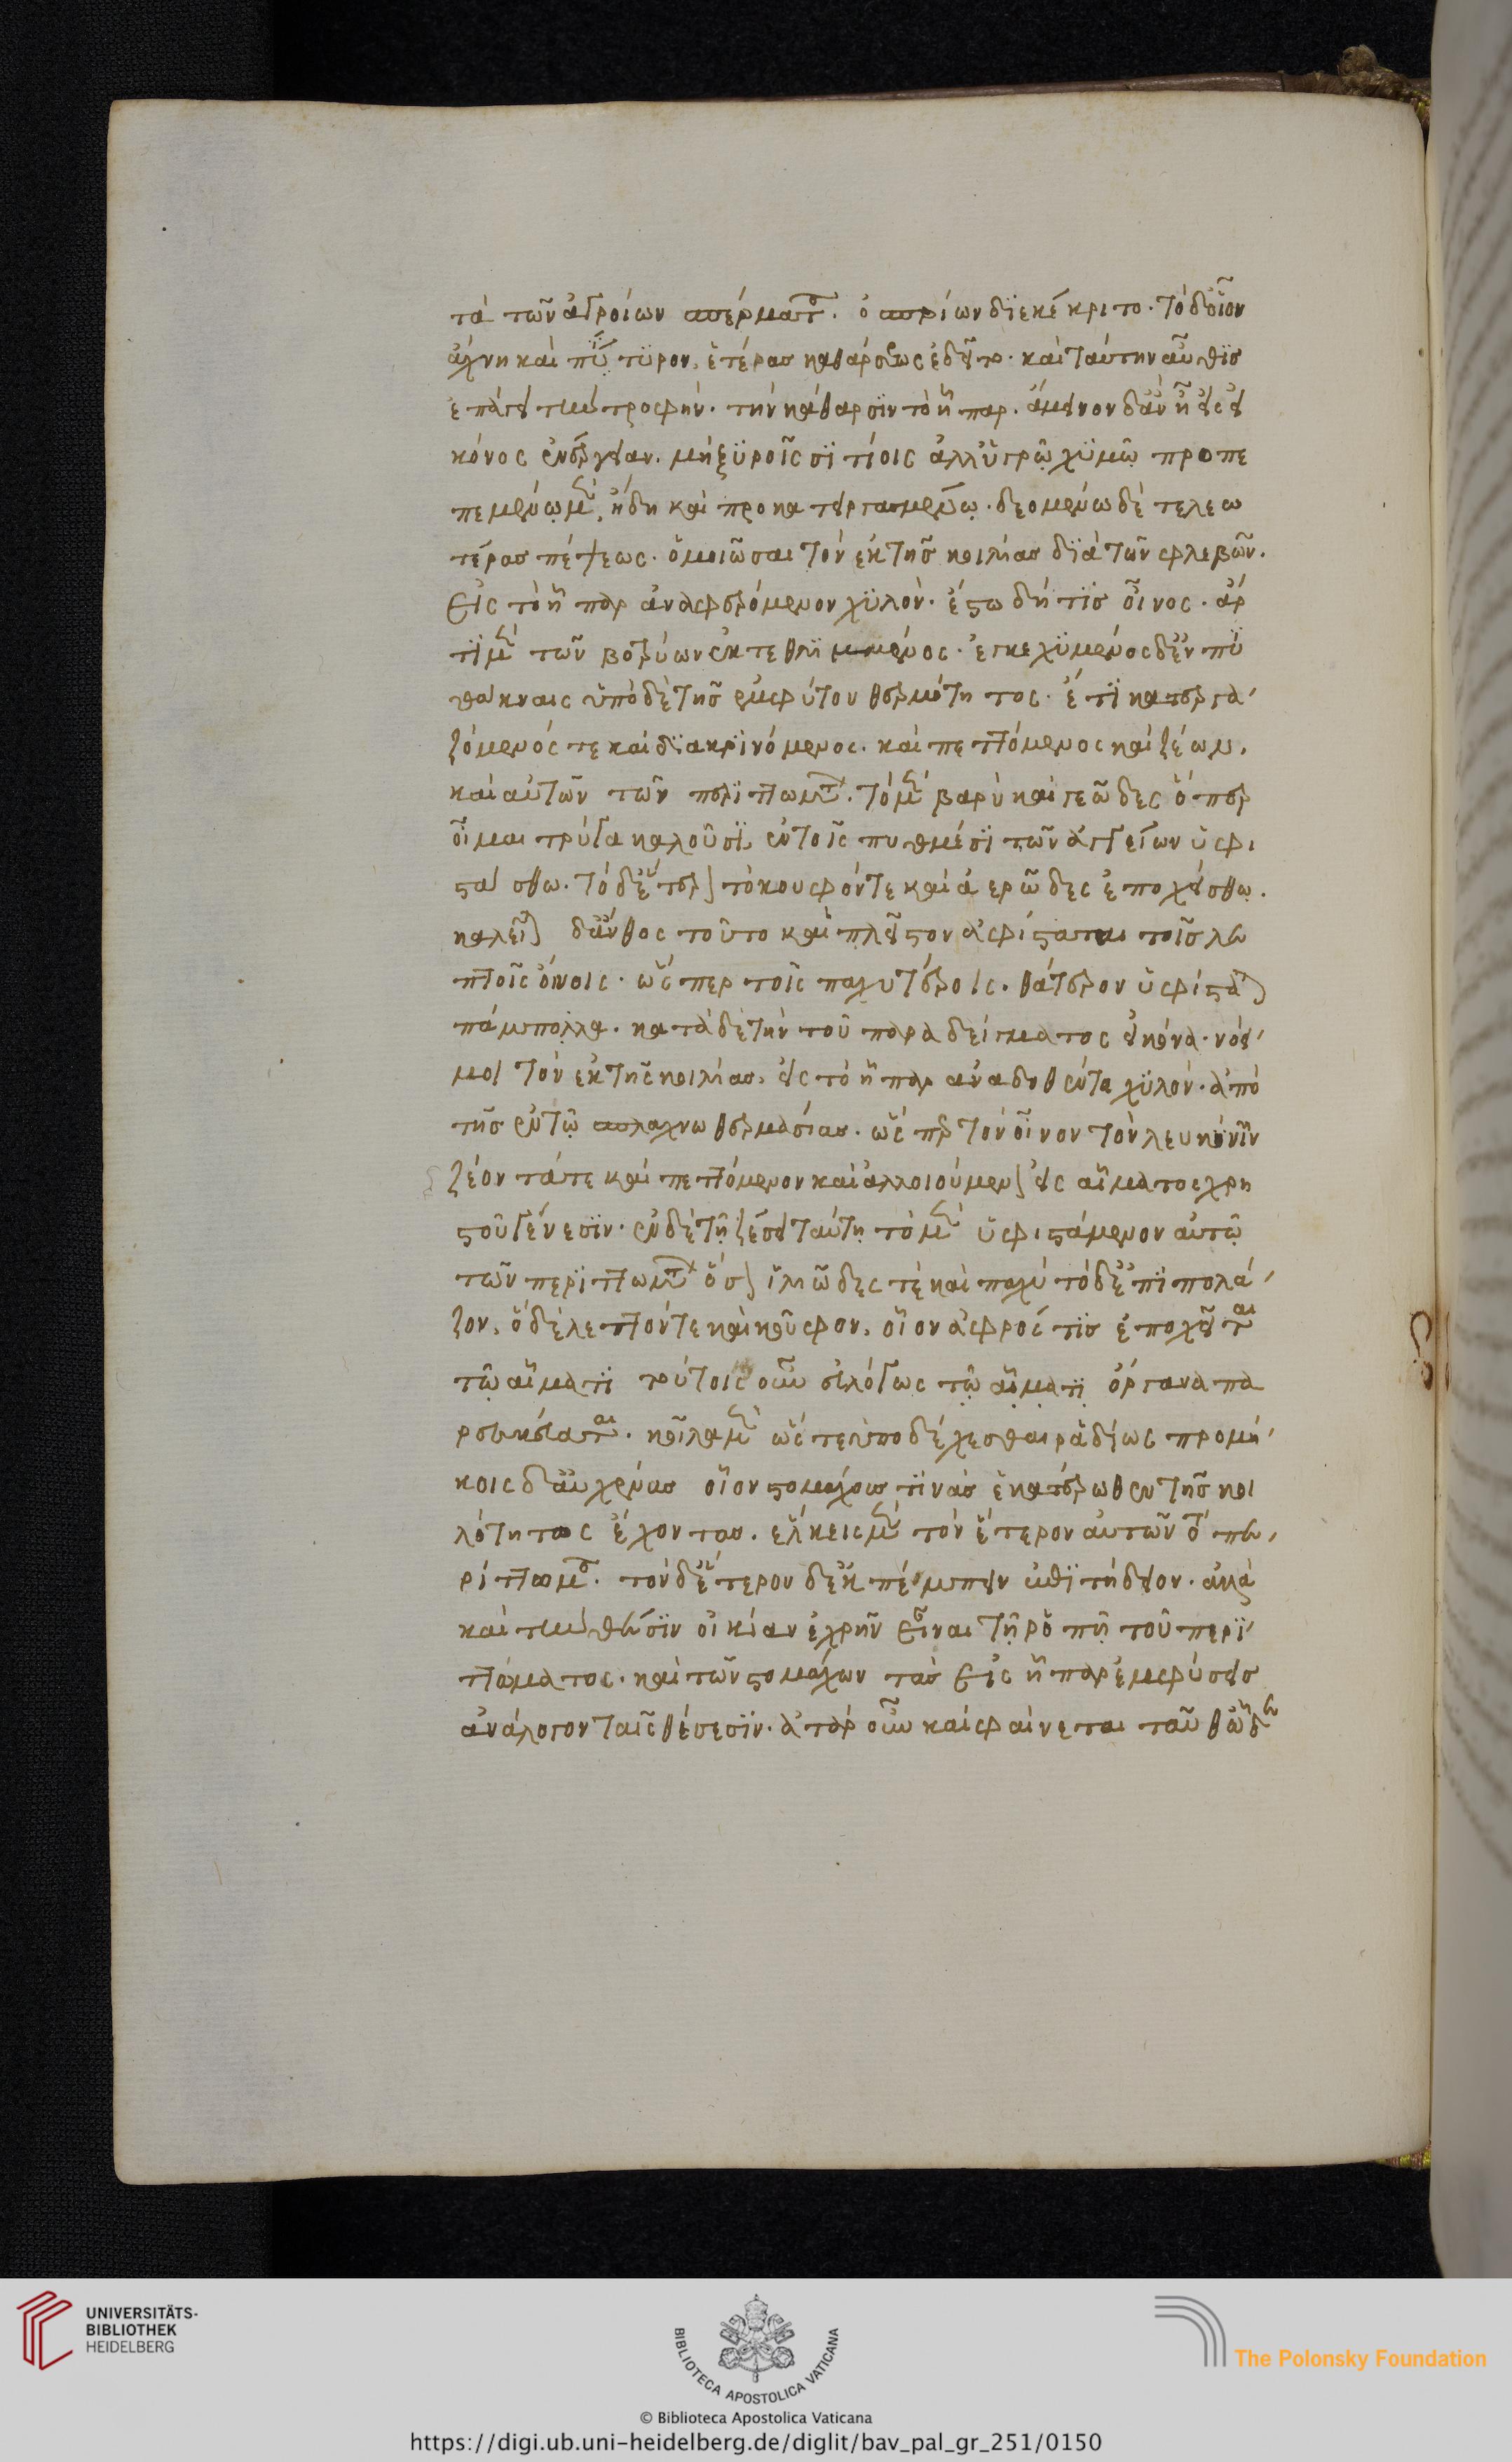 τὰ τῶν ἀγροίων σπέρματα. ὀσπρίων διεκέκριτο. τὸ δ' οἷον
ἄχνη καὶ πίτυρον, ἑτέρας καθάρσεως ἐδεῖτο. καὶ ταύτην αὖθις
ἐπάγει τῆ τροφῆ. τὴν κάθαρσιν τὸ ἧπαρ. ἄμεινον δ' ἂν ἦ εἰς εἰ
κόνος ἐνάργειαν. μὴ ξηροῖς σιτίοις ἀλλ' ὑγρῷ χυμῷ προπε
πεμμένῳ μὲν, ἤδη καὶ προκατειργασμένῳ. δεομένῳ δὲ τελεω
τέρας πέψεως. ὁμοιῶσαι τὸν ἐκ τῆς κοιλίας διὰ τῶν φλεβῶν.
εἰς τὸ ἧπαρ ἀναφερόμενον χυλὸν. ἔστω δή τις οἶνος. ἄρ
τι μὲν τῶν βοτρύων ἐκτεθλιμμένος. ἐγκεχυμένος δ' ἐν πι
θάκναις ὑπὸ δὲ τῆς ἐμφύτου θερμότητος. ἔτι κατεργα
ζόμενός τε καὶ διακρινόμενος. καὶ πεττόμενος καὶ ζέων.
καὶ αὐτῶν τῶν περιττωμάτων. τὸ μὲν βαρὺ καὶ γεῶδες ὅπερ
οἶμαι τρύγα καλοῦσι, ἐν τοῖς πυθμέσι τῶν ἀγγείων ὑφι
στάσθω. τὸ δ' ἕτερον τὸ κουφόν τε καὶ ἀερῶδες ἐποχείσθω.
καλεῖται δ' ἄνθος τοῦτο καὶ πλεῖστον ἀφίσταται τοῖς λε
πτοῖς οἴνοις. ὥσπερ τοῖς παχυτέροις. θάτερον ὑφίσταται
πάμπολλα. κατὰ δὲ τὴν τοῦ παραδείγματος εἰκόνα. νόει
μοι τὸν ἐκ τῆς κοιλίας. εἰς τὸ ἧπαρ ἀναδοθέντα χυλὸν. ἀπὸ
τῆς ἐν τῷ σπλάχνω θερμασίας. ὥσπερ τὸν οἶνον τὸν λευκόνιν
ζέοντά τε καὶ πεττόμενον καὶ ἀλλοιούμενον εἰς αἵματος χρη
στοῦ γένεσιν. ἐν δὲ τῇ ζέσει ταύτῃ τὸ μὲν ὑφιστάμενον αὐτῷ
τῶν περιττωμάτων ὅσον ἰλυῶδες τὲ καὶ παχὺ τὸ δ' ἐπιπολά
ζον, ὃ δὲ λεπτόν τε καὶ κοῦφον, οἷον ἀφρός τις ἐποχεῖται
τῷ αἵματι τούτοις οὖν εὐλόγως τῷ αἵματι ὄργανα πα
ρεσκεύασται. κοῖλα μὲν ὥς τε ὑποδέχεσθαι ῥᾳδίως προμή
κοις δ' αὐχένας οἷον στομάχους τινὰς ἑκατέρωθεν τῆς κοι
λότητος ἔχοντας. ἕλκεις μὲν τὸν ἕτερον αὐτῶν τὸ πε
ρίττωμα. τὸν δ' ἕτερον δ' ἐκπέμπειν ἐπιτήδειον. ἀλλὰ
καὶ τῆ θέσιν οἰκίαν ἐχρῆν εἶναι τῇ ῥοπῇ τοῦ περι
ττώματος. καὶ τῶν στομάχων τὰς εἰς ἧπαρ ἐμφύσεις
ἀνάλογον ταῖς θέσεσιν. ἀτὰρ οὖν καὶ φαίνεται ταῦθ' ὧδε
UNIVERSITÄTS-
BIBLIOTHEK
HEIDELBERG
BIBLIOTECA APOSTOLICA VATICANA
The Polonsky Foundation
© Biblioteca Apostolica Vaticana
https://digi.ub.uni-heidelberg.de/diglit/bav_pal_gr_251/0150